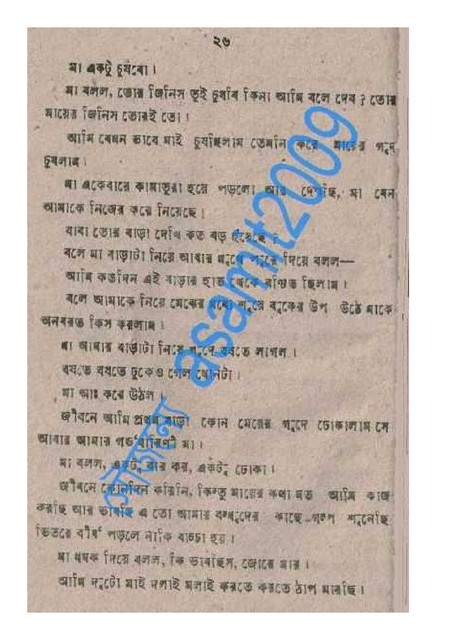 ২৬
মা একটু চুষবো।
মা বলল, তোর জিনিস তুই চুষবি কিনা আমি বলে দেব? তোর
মায়ের জিনিস তোরই তো।
আমি যেমন ভাবে মাই চুষছিলাম তেমনি করে মায়ের গুদ
চুষলাম।
মা একেবারে কামাতুরা হয়ে পড়লো আর দেখছি, মা যেন
আমাকে নিজের করে নিয়েছে।
বাবা তোর বাড়া দেখি কত বড় হয়েছে?
বলে মা বাড়াটা নিয়ে আবার মুখে পুরে দিয়ে বলল—
আমি কতদিন এই বাড়ার হাত থেকে বঞ্চিত ছিলাম।
বলে আমাকে নিয়ে মেঝের মধ্যে শুয়ে বুকের উপ উঠে মাকে
অনবরত কিস করলাম।
মা আমার বাড়াটা নিয়ে গুদে ঘষতে লাগল।
ঘষতে ঘষতে ঢুকেও গেল ধোনটা।
মা আঃ করে উঠল
জীবনে আমি প্রথম বাড়া কোন মেয়ের গুদে ঢোকালাম সে
আবার আমার গর্ভধারিণী মা।
মা বলল, একটু বার কর, একটু ঢোকা।
জীবনে কোনদিন করিনি, কিন্তু মায়ের কথা মত আমি কাজ
করছি আর ভাবছি এ তো আমার বন্ধুদের কাছে গল্প শুনেছি
ভিতরে বীর্য পড়লে নাকি বাচ্চা হয়।
মা ধমক দিয়ে বলল, কি ভাবছিস, জোরে মার।
আমি দুটো মাই দলাই মলাই করতে করতে ঠাপ মারছি।
সৌজন্য asamit2009